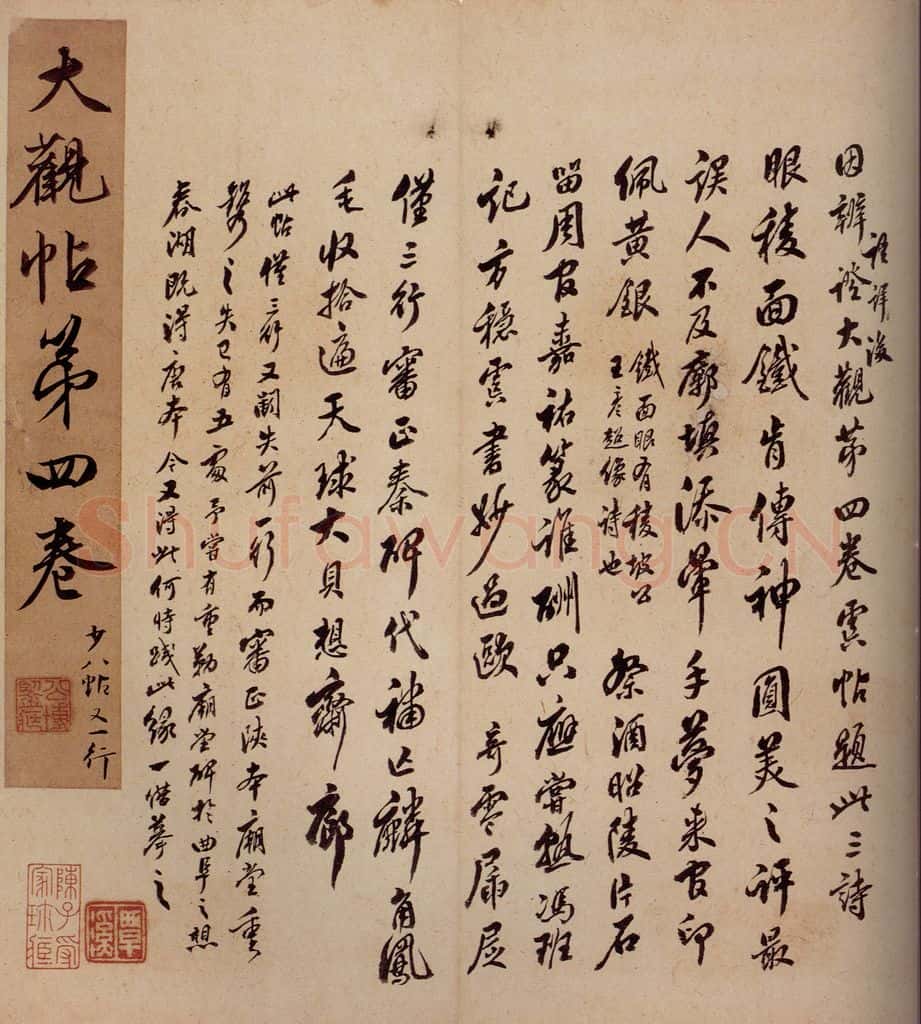 因辨證大觀第四卷虞帖題此三詩
詳後
眼稜面鐵肯傳神圓美之評最
誤人不及廓填添暈手夢來官印
佩黃銀
鐵面眼有稜坡公
王彥超像詩也
祭酒昭陵片石
留周官嘉祐篆誰酬只應嘗熱馮班
記方穩虞書妙過歐 奇零
僅三行審正秦碑代補亡麟角鳳
毛收拾遍天球大貝想齋廊
此帖僅三行又闕失前一行而審正陝本廟堂重
之失已有五處予嘗有重勒廟堂碑於曲阜之想
春湖既得唐本今又得此何時踐此緣一借摹之
大觀帖第四卷
少八帖又一行
陳子受
家珍
覃溪
Shufawang.CN